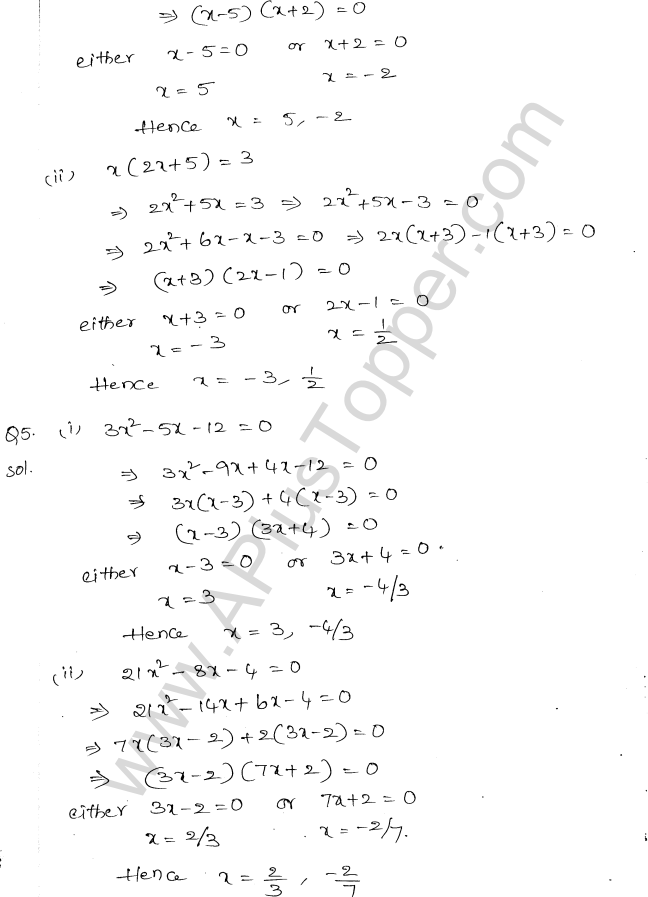 ⇒ (x-5) (x+2) = 0
either x-5=0 or x+2=0
x=5 x=-2
Hence x = 5, -2
(ii) x(2x+5) = 3
⇒ 2x²+5x=3 ⇒ 2x²+5x-3=0
⇒ 2x²+6x-x-3=0 ⇒ 2x(x+3)-1(x+3)=0
⇒ (x+3) (2x-1) = 0
either x+3=0 or 2x-1=0
x=-3 x=1/2
Hence x = -3, 1/2
Q5. (i) 3x²-5x-12=0
Sol.
⇒ 3x²-9x+4x-12=0
⇒ 3x(x-3)+4(x-3)=0
⇒ (x-3) (3x+4) =0
either x-3=0 or 3x+4=0.
x=3 x=-4/3
Hence x=3, -4/3
(ii) 21x²-8x-4=0
⇒ 21x²-14x+6x-4=0
⇒ 7x(3x-2)+2(3x-2)=0
⇒ (3x-2) (7x+2) = 0
either 3x-2=0 or 7x+2=0
x=2/3 x=-2/7.
Hence x = 2/3, -2/7
www.APlusTopper.com